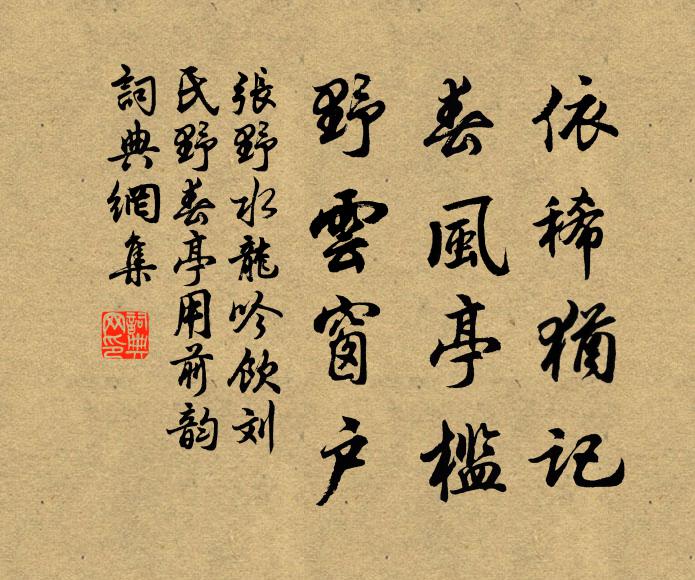 依稀猶记
春風亭檻
野雲窗户
張野水龍吟飲刘
氏野春亭用前韵
詞典網集
詞典
网印